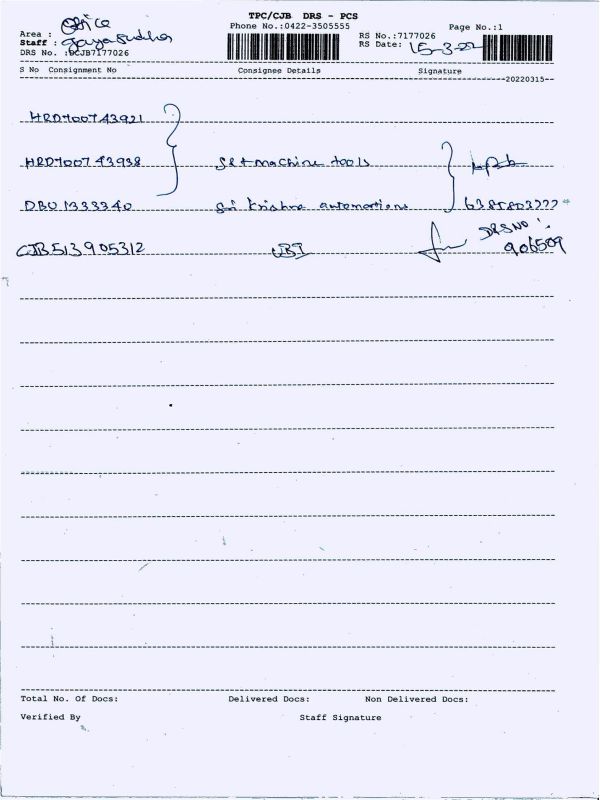 TPC/CJB DRS - PCS
Phone No.:0422-3505555 Page No.:1
Area : Office
RS No.:7177026
Staff : Jayasudha
RS Date: 15-3-22
DRS No. :DCJB7177026
S No Consignment No Consignee Details Signature
20220315
HRD700743921
HRD700743938 S&T machine tools
DBU1333340 Sri Krishna automations
CJB513905312 UBI DRS NO:
906509
Total No. Of Docs: Delivered Docs: Non Delivered Docs:
Verified By Staff Signature